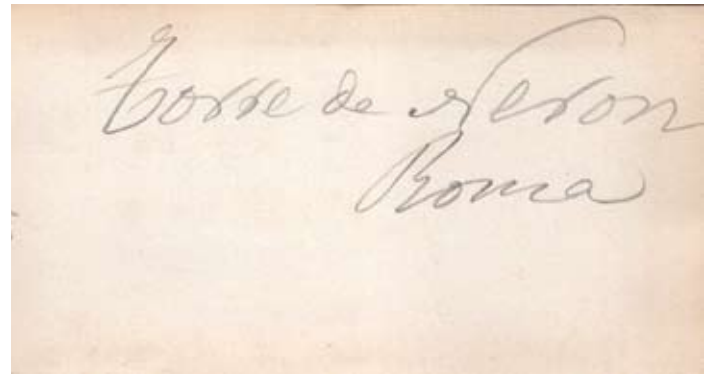 Torre de Neron
Roma